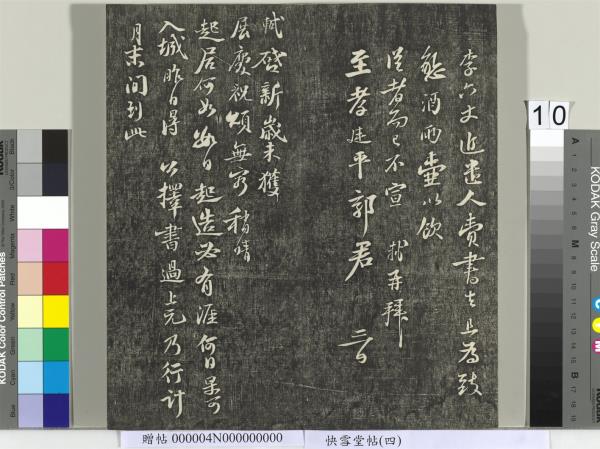 李六丈近遣人赍書去且為致
酒兩壺以飲
從者而已不宣 軾再拜
至孝廷平郭君
軾啓新歲未獲
展慶祝頌無窮稍晴
起居何如數日起造必有涯何日果可
入城昨日得公擇書過上元乃行計
月末間到此
10
KODAK Color Control Patches
Blue
Cyan
Green
Yellow
Red
Magenta
White
3/Color
Black
KODAK Gray Scale
C
Y
M
A
1
2
3
4
5
6
M
8
9
10
11
12
13
14
15
B
17
18
19
贈帖 000004N000000000
快雪堂帖(四)